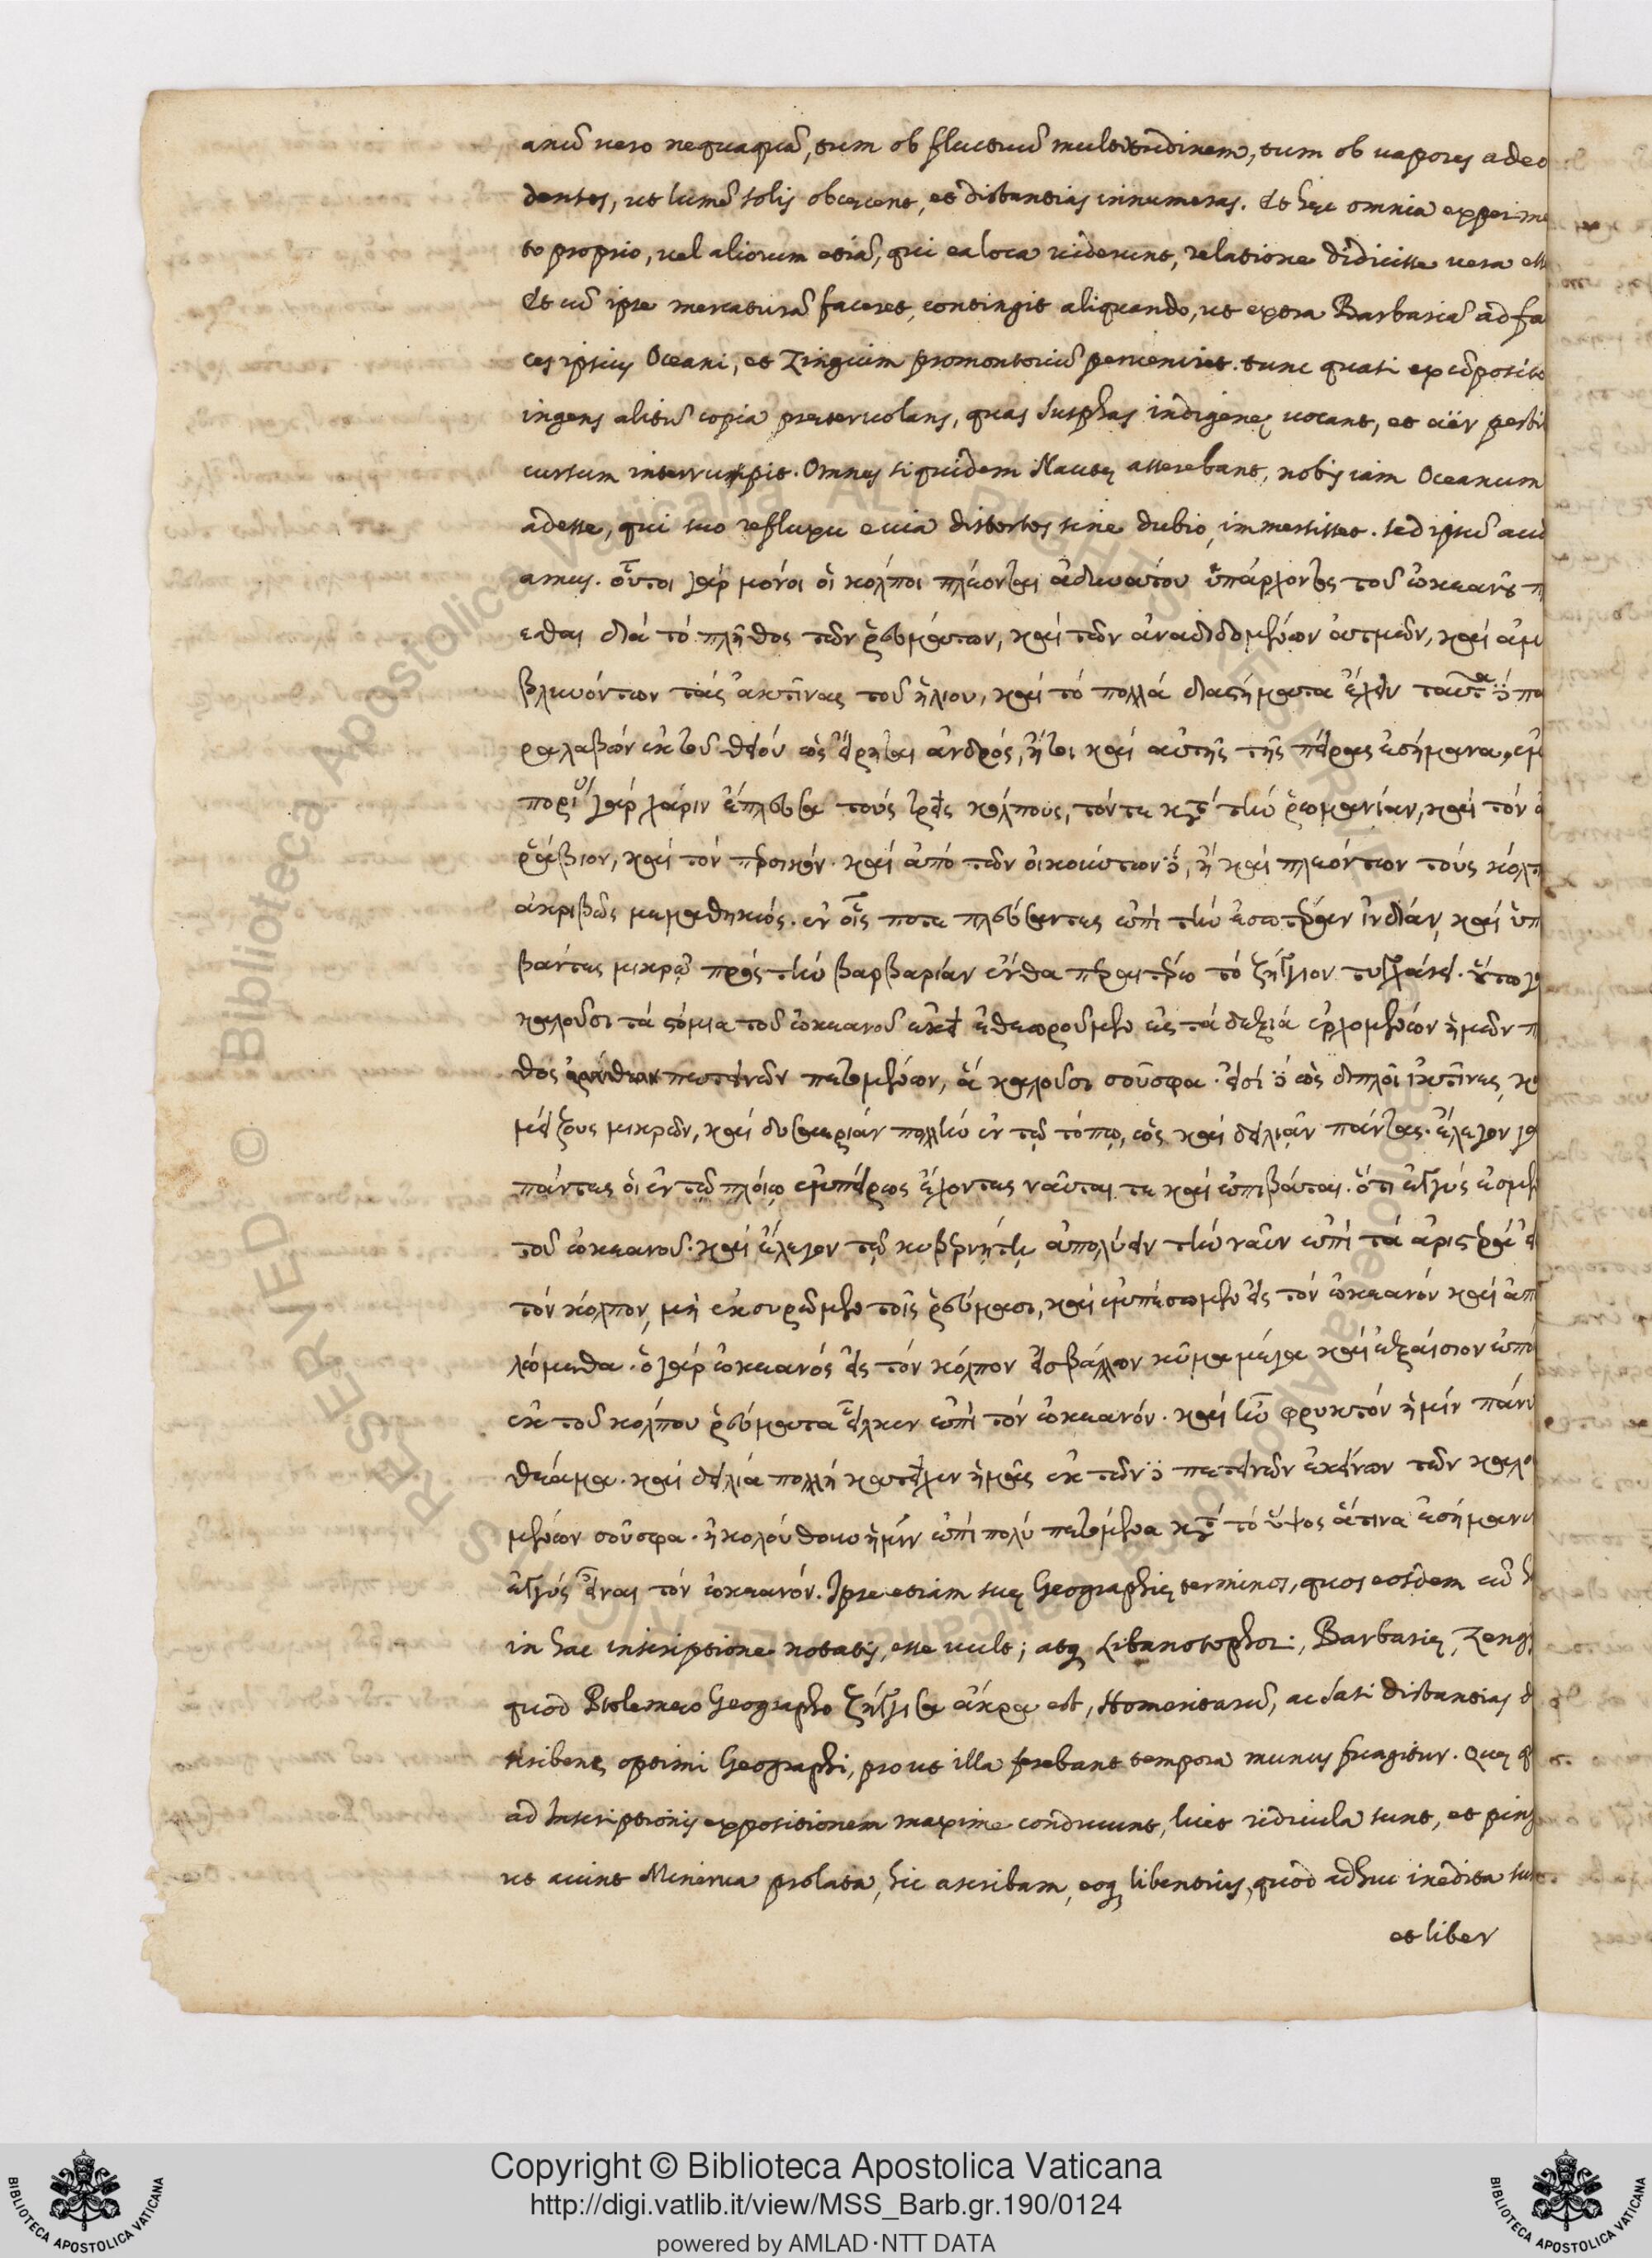 anũ uero nequaquã, tum ob fluctuũ multitudinem, tum ob uapores adeo
densos, ut lumẽ solis obcęcent, et distantias innumeras. Et hęc omnia experime
to proprio, uel aliorum etiã, qui ea loca uiderunt, relatione didicisse uera esse
Et cũ ipse mercaturã faceret, contingit aliquando, ut extra Barbariã ad fa
ces ipsius Oceani, et Zingium promontoriũ perueniret. tunc quasi ex cõposito
ingens alitũ copia preteruolans, quas Susphas indigenę uocant, et aër
cursum interrumpit. Omnes siquidem Nautę asserebant, nobis iam Oceanum
adesse, qui suo refluxu e uia distortos sine dubio, immersisset. sed ipsũ
amus. οὗτοι γάρ μόνοι οἱ κόλποι πλέονται ἀδυνάτου ὑπάρχοντος τοῦ ὠκεανοῦ π
εσθαι διά τό πλῆθος τῶν ῥευμάτων, καί τῶν ἀναδιδομένων ἀτμῶν, καί ἀμ
βλυνόντων τάς ἀκτῖνας τοῦ ἡλίου, καί τό πολλά διαστήματα ἔχειν ταῦτα δέ πα
ραλαβών ἐκ τοῦ θείου ὡς εἴρηται ἀνδρός, ἤτοι καί αὐτῆς τῆς πείρας ἐσήμανα, ἐμ
πορίας γάρ χάριν ἔπλευσα τούς τρεῖς κόλπους, τόν τε κατά τήν ῥωμανίαν, καί τόν ἀ
ῥάβιον, καί τόν περσικόν. καί ἀπό τῶν οἰκούντων δέ, ἤ καί πλεόντων τούς κόλπ
ἀκριβῶς μεμαθηκώς. ἐν οἷς ποτε πλεύσαντες ἐπί τήν ἐσωτέραν ἰνδίαν, καί ὑπ
βάντες μικρῷ πρός τήν βαρβαρίαν ἔνθα περαιτέρω τό ζήγγιον τυγχάνει. οὕτω γ
καλοῦσι τά στόμια τοῦ ὠκεανοῦ ἐκεῖ ἐθεωροῦμεν εἰς τά δεξιά εἰσερχομένων ἡμῶν π
θος πετεινῶν πετομένων, ἅ καλοῦσι σοῦσφα. εἰσί δέ ὡς διπλοῖ ἰκτῖνες, κα
μείζους μικρῶν, καί δυσαερίαν πολλήν ἐν τῷ τόπῳ, ὡς καί δειλιᾷν πάντας. ἔλεγον γα
πάντες οἱ ἐν τῷ πλοίῳ ἐμπείρως ἔχοντες ναῦται τε καί ἐπιβάται. ὅτι ἐγγύς ἐσμεν
τοῦ ὠκεανοῦ. καί ἔλεγον τῷ κυβερνήτῃ ἀπολύειν τήν ναῦν ἐπί τά ἀριστερά ε
τόν κόλπον, μή ἐκσυρῶμεν τοῖς ῥεύμασι, καί ἐμπέσωμεν εἰς τόν ὠκεανόν καί ἀπ
λώμεθα. ὁ γάρ ὠκεανός εἰς τόν κόλπον εἰσβάλλων κῦμα μέγα καί ἐξαίσιον ἐποί
ἐκ τοῦ κόλπου ῥεύματα εἷλκεν ἐπί τόν ὠκεανόν. καί ἦν φρικτόν ἡμῖν πάνυ
θέαμα. καί δειλία πολλή κατεῖχεν ἡμᾶς ἐκ τῶν δέ πετεινῶν ἐκείνων τῶν καλο
μένων σοῦσφα. ἠκολούθουν ἡμῖν ἐπί πολύ πετόμενα κατά τό ὕψος ἅτινα ἐσήμανε
ἐγγύς εἶναι τόν ὠκεανόν. Ipse etiam suę Geographię terminos, quos eosdem cũ h
in hac inscriptione notatis, esse uult; atq Libanotophori, Barbarię, Zengi
quod Ptolemeo Geographo ζήγγισα ἄκρα est, Homeritarũ, ac Sasi distantias d
scribens optimi Geographi, prout illa ferebant tempora munus fungitur. Quę
ad Inscriptionis expositionem maxime conducunt, licet ridicula sunt, et ping
ut aiunt Minerua prolata, hic ascribam, eoq libentius, quod adhuc inedita sun
et liber
Copyright © Biblioteca Apostolica Vaticana
http://digi.vatlib.it/view/MSS_Barb.gr.190/0124
powered by AMLAD·NTT DATA